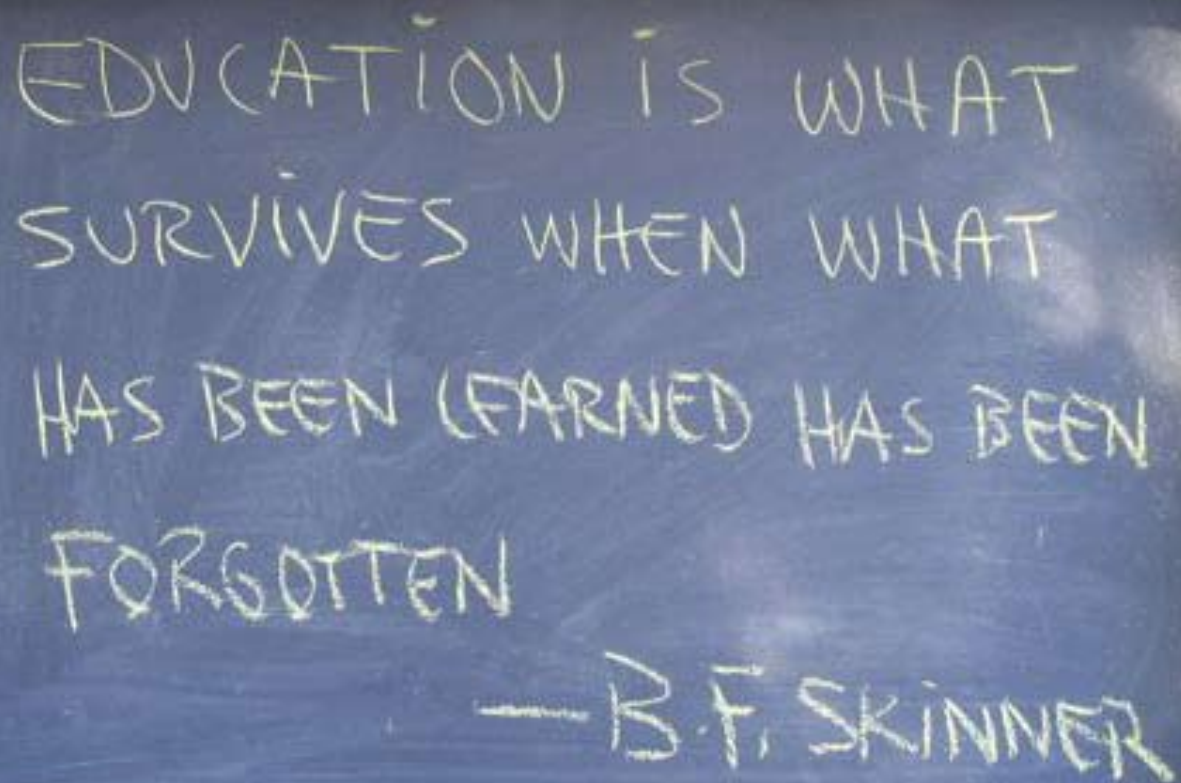 EDUCATiON iS WHAT
SURViVES WHEN WHAT
HAS BEEN LEARNED HAS BEEN
FORGOTTEN
—B.F. SKiNNER